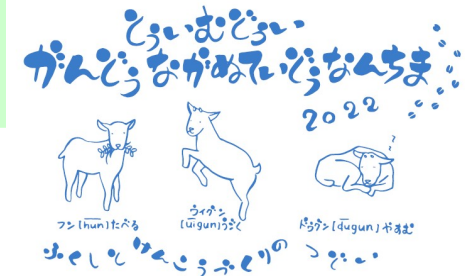 とぅいむどぅい
がんどぅながぬていどぅなんちま
2022
フン[hun]たべる
ウイグン[uigun]うごく
ドゥグン[dugun]やすむ
ふくしとけんこうづくりのつどい